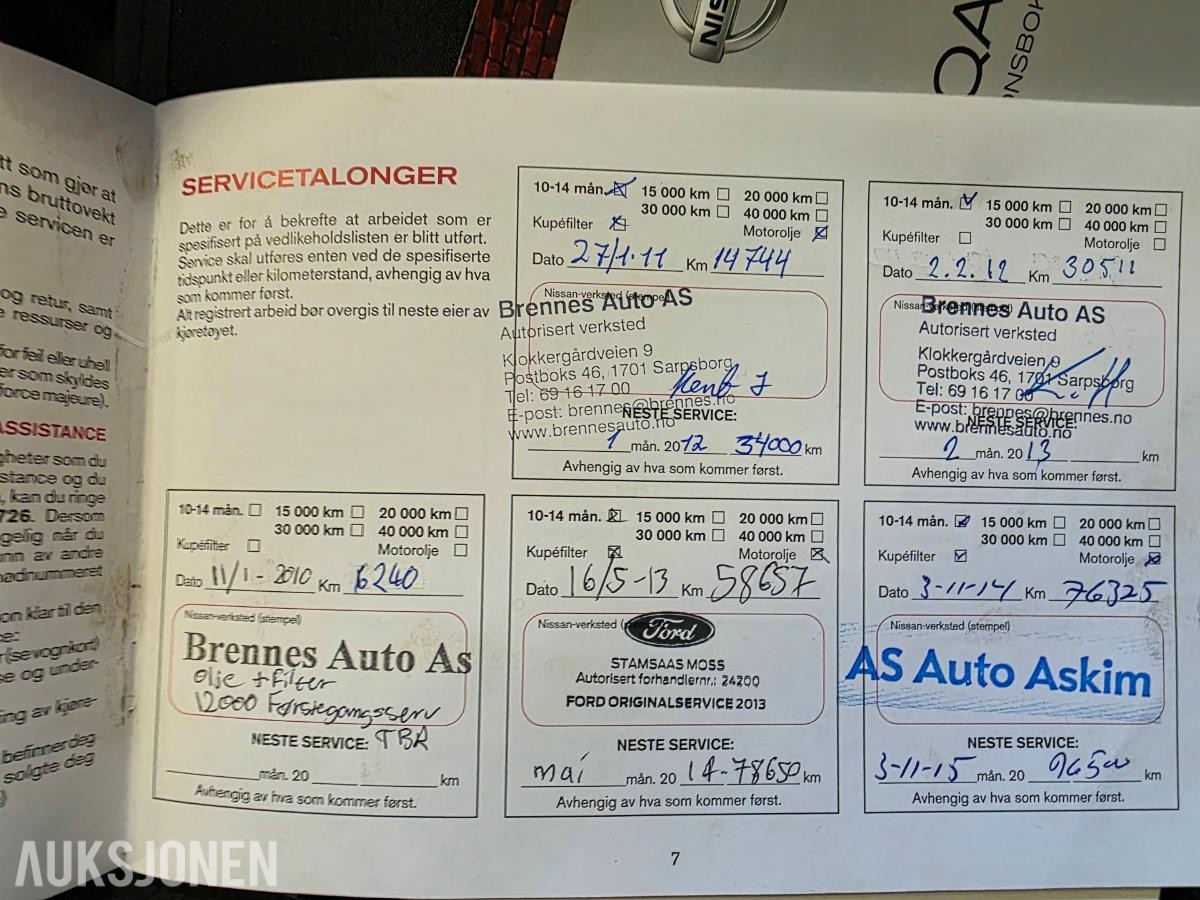 NIS
QA
ONSBOK
tt som gjør at
ns bruttovekt
e servicen er
og retur, samt
e ressurser og
for feil eller uhell
er som skyldes
force majeure).
ASSISTANCE
gheter som du
stance og du
, kan du ringe
726. Dersom
gelig når du
nn av andre
nødnummeret
om klar til den
e:
r (se vognkort)
e og under-
ing av kjøre-
befinner deg
soligte deg
SERVICETALONGER
Dette er for å bekrefte at arbeidet som er
spesifisert på vedlikeholdslisten er blitt utført.
Service skal utføres enten ved de spesifiserte
tidspunkt eller kilometerstand, avhengig av hva
som kommer først.
Alt registrert arbeid bør overgis til neste eier av
kjøretøyet.
10-14 mån. 15 000 km 20 000 km
30 000 km 40 000 km
Kupéfilter Motorolje
Dato 27/1.11 Km 14744
Nissan-verksted (stempel)
Brennes Auto AS
Autorisert verksted
Klokkergårdveien 9
Postboks 46, 1701 Sarpsborg
Tel: 69 16 17 00
E-post: brennes@brennes.no
www.brennesauto.no
NESTE SERVICE:
1 mån. 2012 34000 km
Avhengig av hva som kommer først.
10-14 mån. 15 000 km 20 000 km
30 000 km 40 000 km
Kupéfilter Motorolje
Dato 2.2.12 Km 30511
Nissan-verksted (stempel)
Brennes Auto AS
Autorisert verksted
Klokkergårdveien 9
Postboks 46, 1701 Sarpsborg
Tel: 69 16 17 00
E-post: brennes@brennes.no
www.brennesauto.no
NESTE SERVICE:
2 mån. 2013 km
Avhengig av hva som kommer først.
10-14 mån. 15 000 km 20 000 km
30 000 km 40 000 km
Kupéfilter Motorolje
Dato 11/1-2010 Km 6240
Nissan-verksted (stempel)
Brennes Auto As
olje + filter
12000 Førstegangsserv
NESTE SERVICE: TBR
mån. 20 km
Avhengig av hva som kommer først.
10-14 mån. 15 000 km 20 000 km
30 000 km 40 000 km
Kupéfilter Motorolje
Dato 16/5-13 Km 58657
Nissan-verksted
Ford
STAMSAAS MOSS
Autorisert forhandlernr.: 24200
FORD ORIGINALSERVICE 2013
NESTE SERVICE:
mai mån. 20 14-78650 km
Avhengig av hva som kommer først.
10-14 mån. 15 000 km 20 000 km
30 000 km 40 000 km
Kupéfilter Motorolje
Dato 3-11-14 Km 76325
Nissan-verksted (stempel)
AS Auto Askim
NESTE SERVICE:
3-11-15 mån. 20 96500 km
Avhengig av hva som kommer først.
7
AUKSJONEN